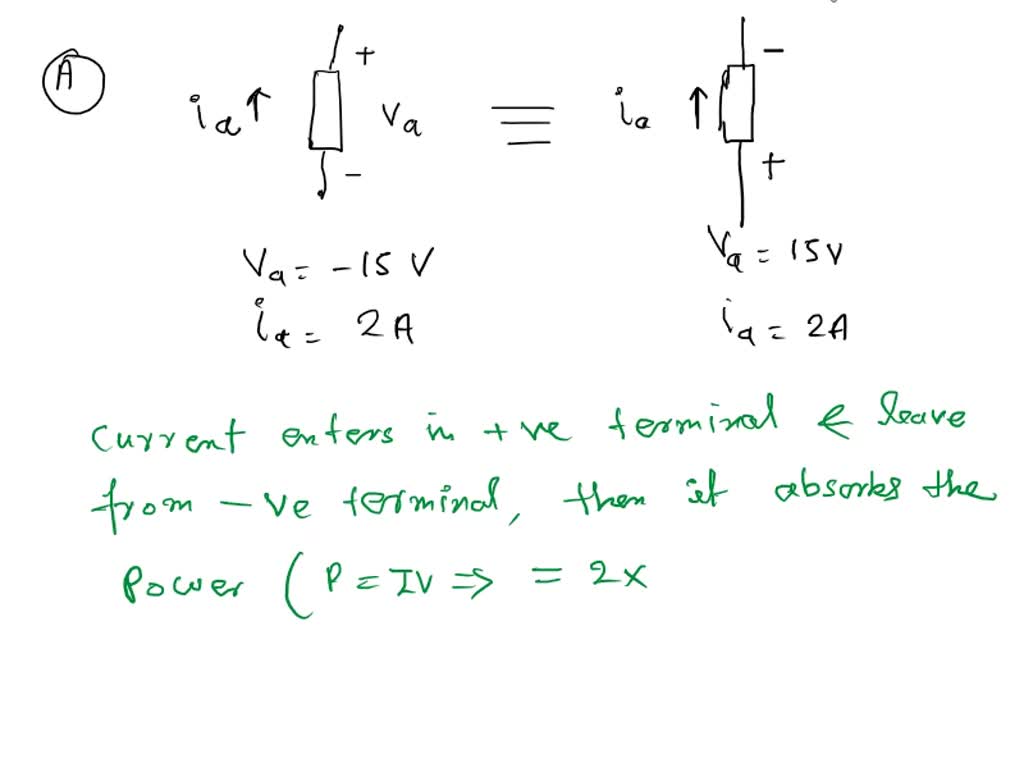 A
+
-
ia ↑
va
≡
ia ↑
-
+
Va = -15 V
Va = 15V
ia = 2A
ia = 2A
current enters in +ve terminal & leave
from -ve terminal, then it absorbs the
Power ( P = IV ⇒ = 2x